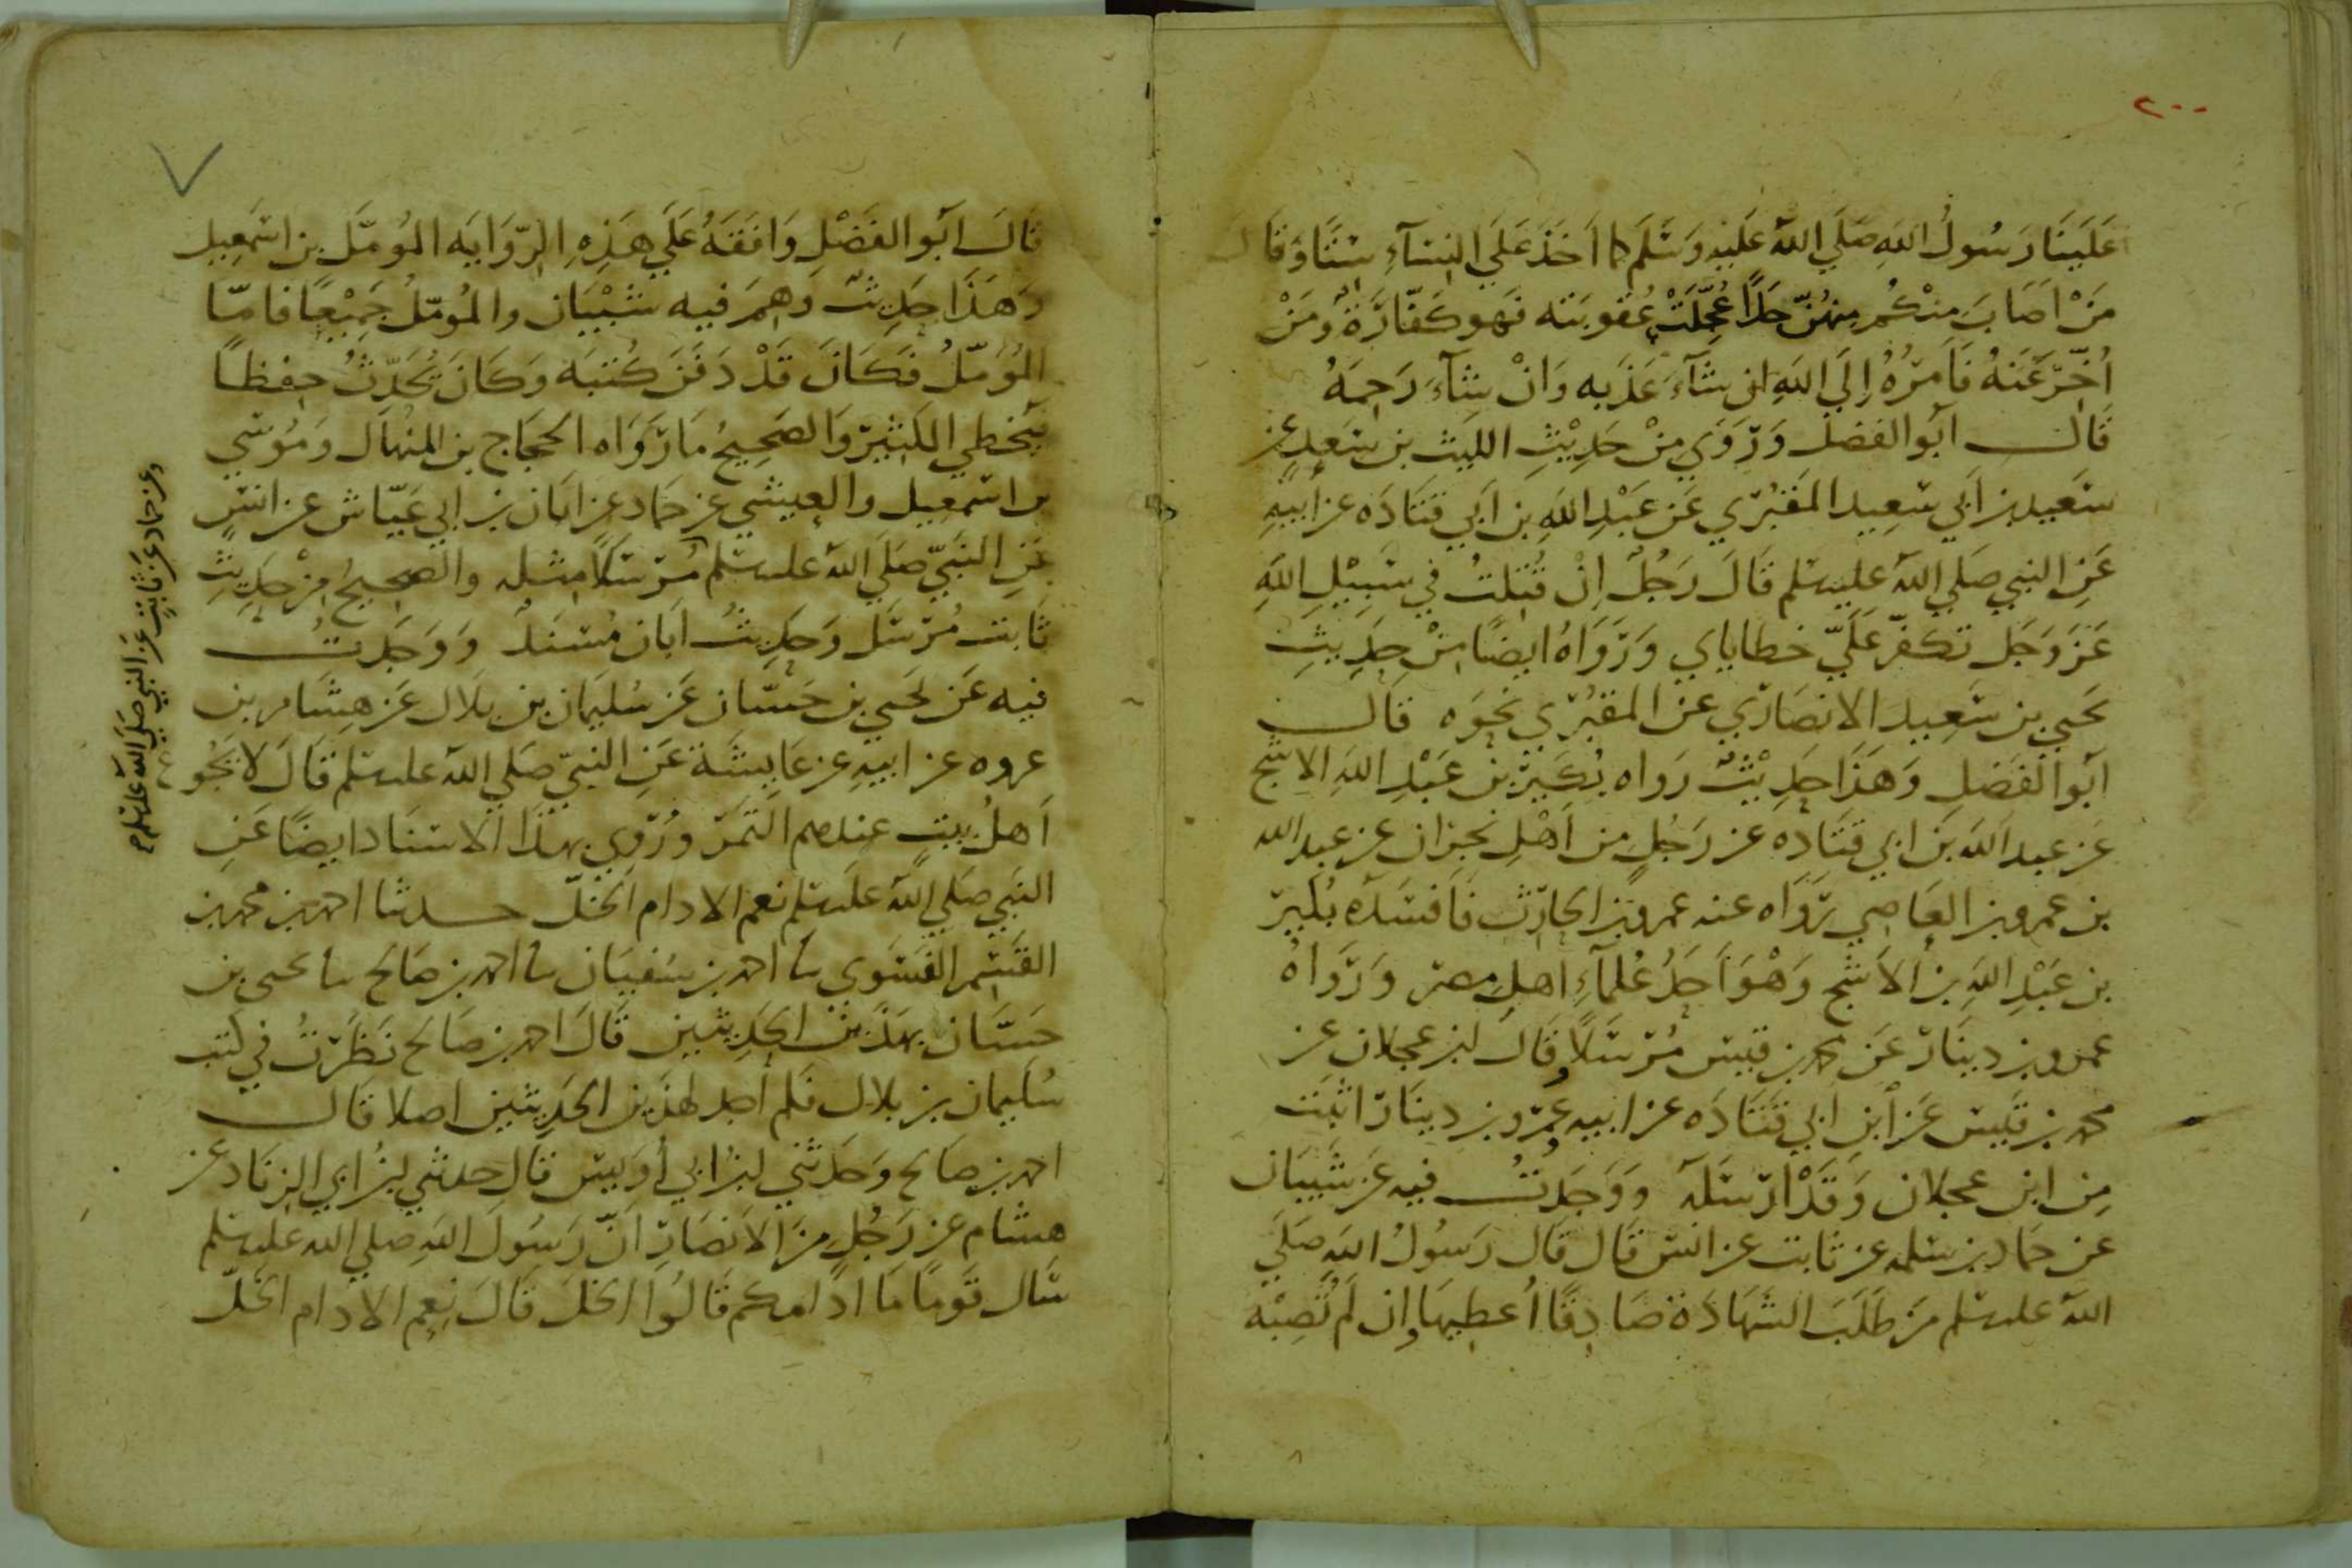 ٢٠٠
عَلَينَا رَسُولُ اللهِ صَلَّي اللهُ عَلَيْهِ وَسَلَّمَ كما اَخَذَ عَلَي النِسَآءِ سِتًّا وَقَالَ
مَنْ اَصَابَ منكُم مِنهُنّ حَدًّا عُجِّلَتْ عُقوبَته فَهو كَفّارَةٌ وَمَنْ
اُخّرَ عَنهُ فَاَمرُهُ اِلَي اللهِ ان شَآءَ عَذّبه وَانْ شَآءَ رَحِمَهُ
قَالَ ابَوالفضل وَرَوَي مِنْ حَدِيْثِ الليث بن سَعدٍ عن
سَعَيد بن اَبي سَعِيد المَقبُرّي عَن عَبْدِ اللهِ بن اَبي قتَادَه عن اَبيهِ
عَنِ النبي صَلي اللهُ عليه سلم قَالَ رَجُلٌ اِنْ قُتِلتُ في سَبِيْلِ اللهِ
عَزَ وَجَل تكفّر عَلَيَّ خطاياي وَرَوَاهُ ايضًا مِنْ حَدِيثِ
يَحيي بن سَعِيد الانصَارّي عن المقبُرّي نحَوَه قَالَ
ابَوالفَضلِ وَهَذَا حَدِيْثٌ رَواه بُكَيرّ بن عَبْدِ اللهِ الاشَجّ
عَن عبد اللهِ بن ابي قتَادَه عن رَجُلٍ من اَهْلِ نجرَان عن عبد الله
بن عمرو بن العَاصِي رَوَاه عنه عمرو بن الحَارِث فَافسَدَه بُكَيرّ
بن عَبْدِ اللهِ بن الاَشَجّ وَهْوَ اَحَدُ عُلَمآءِ اَهلِ مصرَ وَرَوَاهُ
عمرو بن دينَارّ عَن محمد بن قيسّ مُرْسَلاً وَقَالَ ابن عجلان عن
محمد بن قَيسّ عَن اَبنِ ابي قَتَادَه عن ابيه وعَمْرّو بن دينَارّ اثبَتُ
مِن ابن عجلان وَقَدْ ارْسَلَهُ وَوَجَدتُ فيهِ عَن شَيبَان
عن حمَاد بن سَلمه عن ثابت عن انَسّ قَال قَال رَسُولُ اللهِ صَلَي
اللهُ عليه سلم مَن طَلَبَ الشَهَادَةَ صَادِقًا اُعطِيهَا وان لَم تُصِبْهُ
قَالَ اَبَوالفَضْلِ وَافَقَهُ عَلَي هَذِهِ الرّوَايَه المُومّل بن اسمَعِيل
وَهَذَا حَدِيثٌ وَهِمَ فيه شَيْبَان والمُومّلُ جَمِيْعًا فامّا
المُومّلُ فَكَانَ قَدْ دَفَنَ كُتبَه وَكَانَ يُحَدّثُ حِفظًا
فَيُخطِي الكَثِيرّ وَالصَحِيحُ مَا رَوَاه الحجَاج بن المنهَال وَمُوسَي
بن اسمعيل والعيشي عن حمَاد عن ابَان بن ابي عَيّاش عن انَسٍ
عَنِ النَبِيّ صَلَي اللهُ عليه سلم مُرْسَلاً مثله والصحيحُ مِنْ حَدِيثِ
ثَابت مُرْسَل وَحَدِيثُ اَبَان مُسنَدٌ وَوَجَدتُ
فيه عَن يحيى بن حَسّان عَن سُليمَان بن بلَال عَن هِشَام بن
عروه عن ابيهِ عن عَايشَة عَنِ النبيّ صَلي اللهُ عليه سلم قَالَ لا يَجُوع
اَهلُ بيتٍ عندهم التَمَر ورُوي بهذَا الاسنَاد ايضًا عَنِ
النَبي صَلي اللهُ عليه سلم نعم الادام الخلّ حـدثنا احمد بن محمد بن
القسم الفَسَوي نا احمد بن سفيَان نا احمد بن صَالح نا يحيى بن
حَسّان بهذَين الحَدِيثين قَالَ احمد بن صَالح نَظَرْتُ في كتب
سُليمان بن بلال فَلم اَجد لهذَين الحَدِيثين اصلا قَالَ
احمد بن صَالح وَحَدثَني ابن ابي اُوَيس قَال حدثني ابن ابي الزنَاد عن
هِشام عن رَجُلٍ مِنَ الاَنصَارِ اَنّ رَسُولَ اللهِ صلي الله عليه سلم
سَال قَومًا مَا ادَامكم قَالُوا الخَلّ قَالَ نِعم الادام الخَلّ
وعن حماد عَن ثَابتٍ عَن النبي صَلي اللهُ عليه سلم